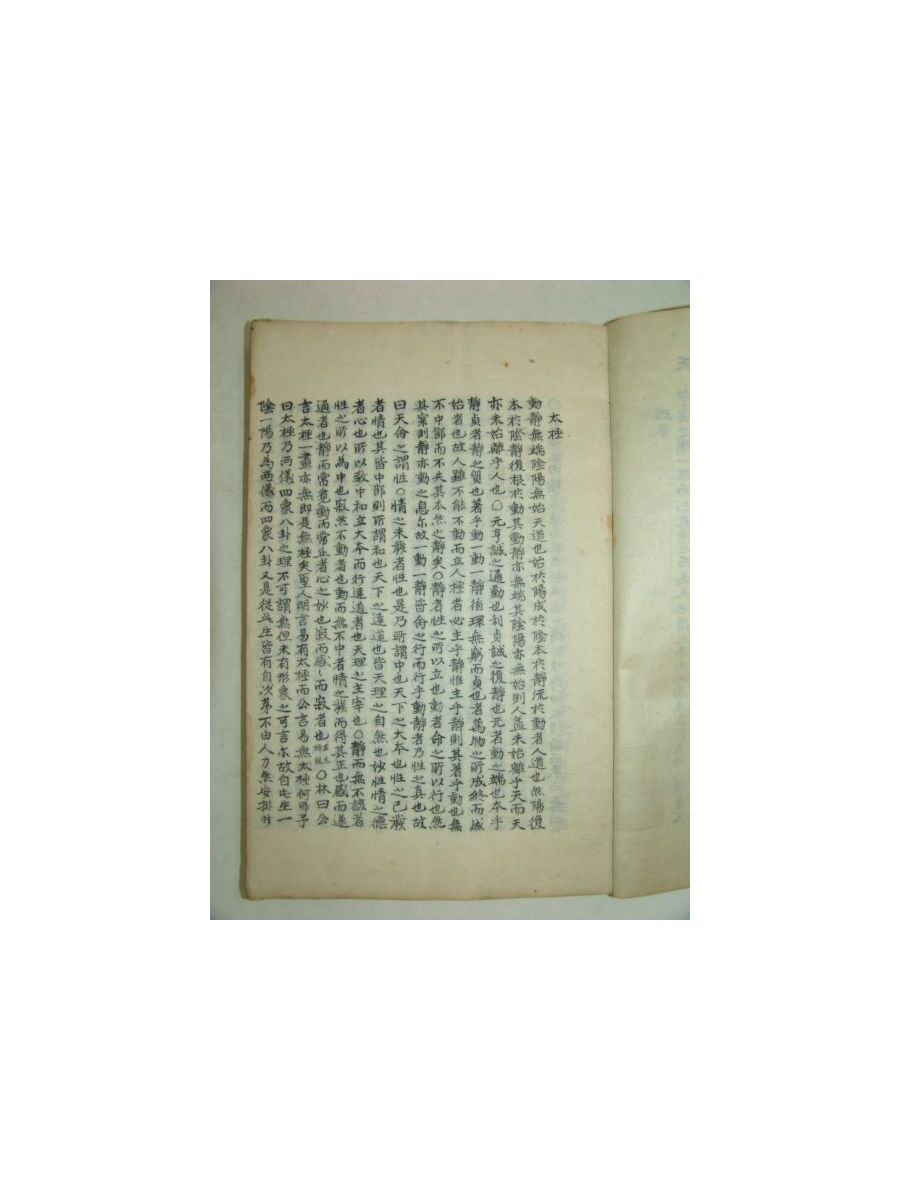 太極
動靜無端陰陽無始天道也始於陽成於陰本於靜流於動者人道也然陽復
本於陰靜復根於動其動靜亦無端其陰陽亦無始則人盖未始離乎天而天
亦未始離乎人也○元亨誠之通動也利貞誠之復靜也元者動之端也本乎
靜貞者靜之質也著乎動一動一靜循環無窮而貞也者萬物之所成終而成
始者也故人雖不能不動而立人極者必主乎靜惟主乎靜則其著乎動也無
不中節而不失其本然之靜矣○靜者性之所以立也動者命之所以行也然
其實則靜亦動之息尔故一動一靜皆命之行而行乎動靜者乃性之真也故
曰天命之謂性○情之未發者性也是乃所謂中也天下之大本也性之已發
者情也其皆中節則所謂和也天下之達道也皆天理之自然也妙性情之德
者心也所以致中和立大本而行達道者也天理之主宰也○靜而無不該者
性之所以為中也寂然不動者也動而無不中者情之發而得其正也感而遂
通者也靜而常覺動而常止者心之妙也寂而感〻而寂者也○林曰公
言太極一畫亦無即是無極矣聖人明言易有太極而公言易無太極何耶予
曰太極乃兩儀四象八卦之理不可謂無但未有形象之可言尔故自此生一
陰一陽乃為兩儀而四象八卦又是從此生皆有自次苐不由人力然安排